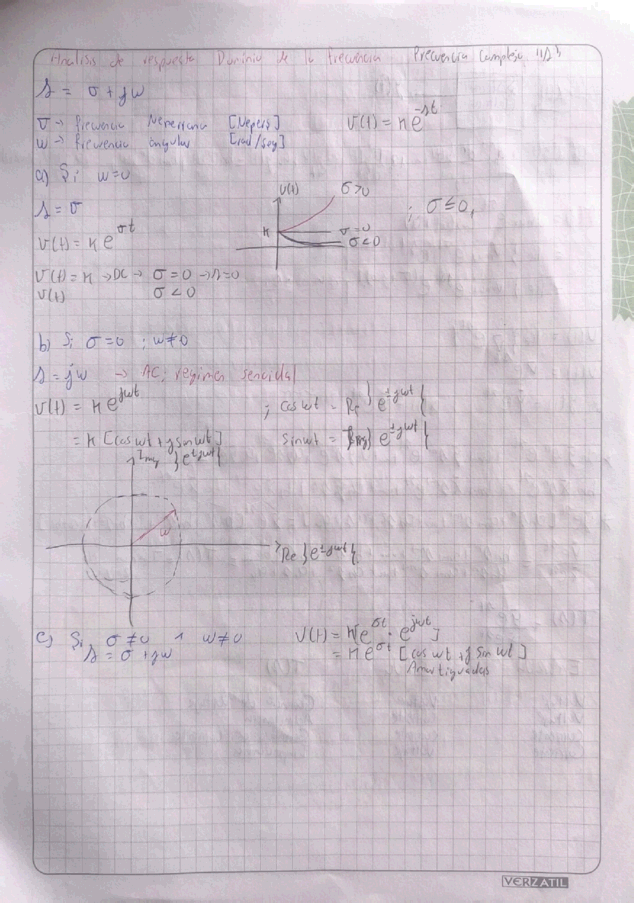 Analisis de respuesta Dominio de la frecuencia Frecuencia Compleja "s"
s = σ + jω
σ → frecuencia Neperiana [Nepers] V(t) = K e^-st
ω → frecuencia angular [rad/seg]
a) Si ω=0
s = σ
V(t) = K e^σt
V(t) K σ>0 σ=0 σ<0 ; σ≤0,
V(t) = K → DC → σ=0 → s=0
V(t) σ<0
b) Si σ=0 ; ω≠0
s = jω → AC; regimen senoidal
V(t) = K e^jωt ; cos ωt = Re } e^±jωt {
= K [cos ωt + j sin ωt] Sin ωt = Img } e^±jωt {
Img } e^±jωt {
ω
Re } e^±jωt {
c) Si σ≠0 ^ ω≠0 V(t) = K[e^σt · e^jωt]
s = σ + jω = K e^σt [cos ωt + j Sin ωt]
Amortiguadas
VERZATIL